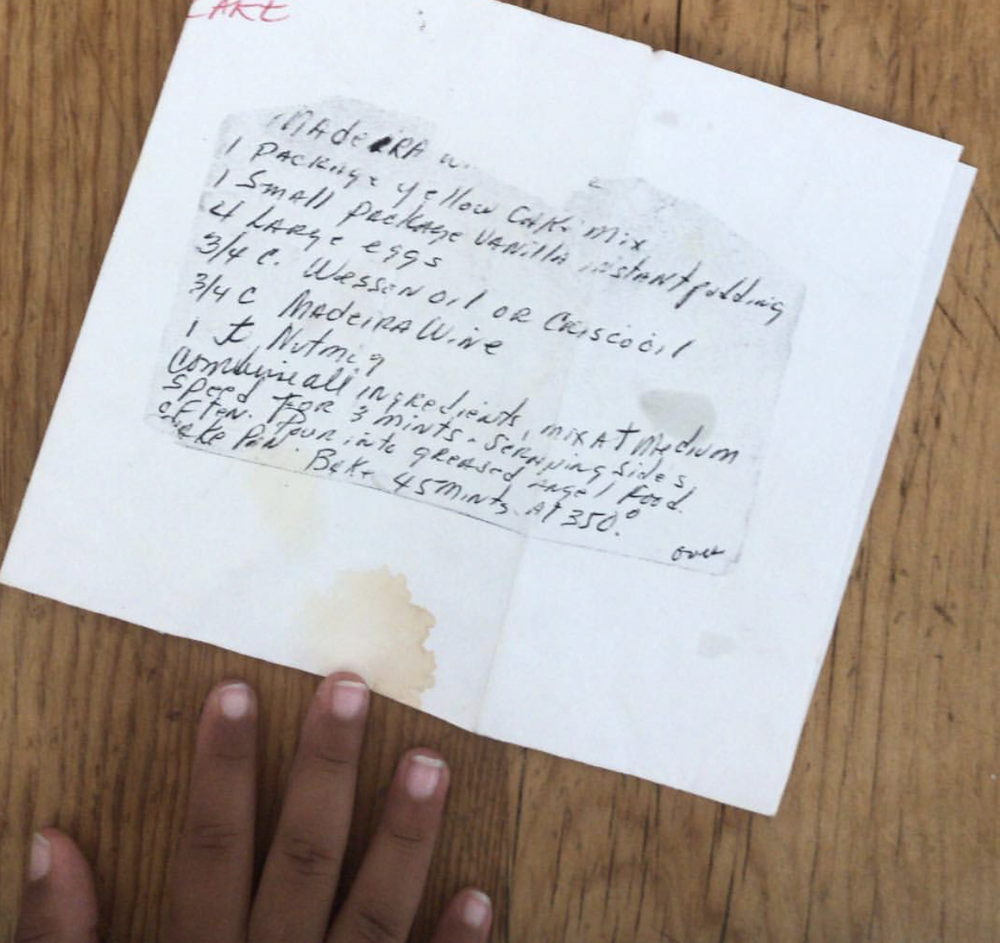 CAKE
MAdeiRA
1 PACKAge yellow CAKe Mix
1 Small package VANilla instant pudding
4 LARge eggs
3/4 C. Wesson oil OR Crisco oil
3/4 C MAdeiRA Wine
1 t Nutmeg
Combine all ingredients, mix AT Medium
Speed FOR 3 mints. Scrapping sides
OFTEN. Pour into greased Angel Food
cake Pan. Bake 45 Mints AT 350°.
over